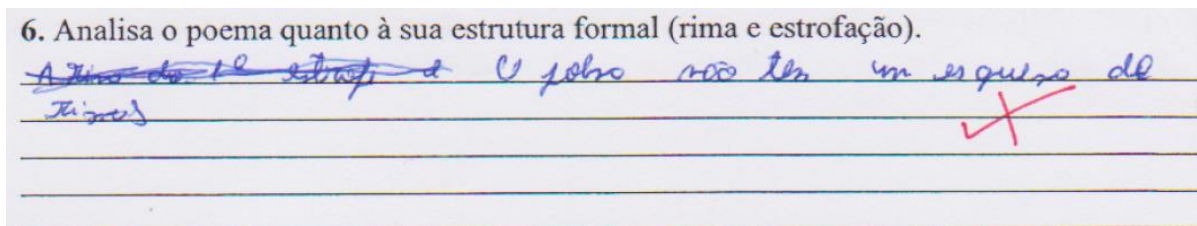 6. Analisa o poema quanto à sua estrutura formal (rima e estrofação).
A rima da 1ª estrofe é O não tem um esquema de
rimas